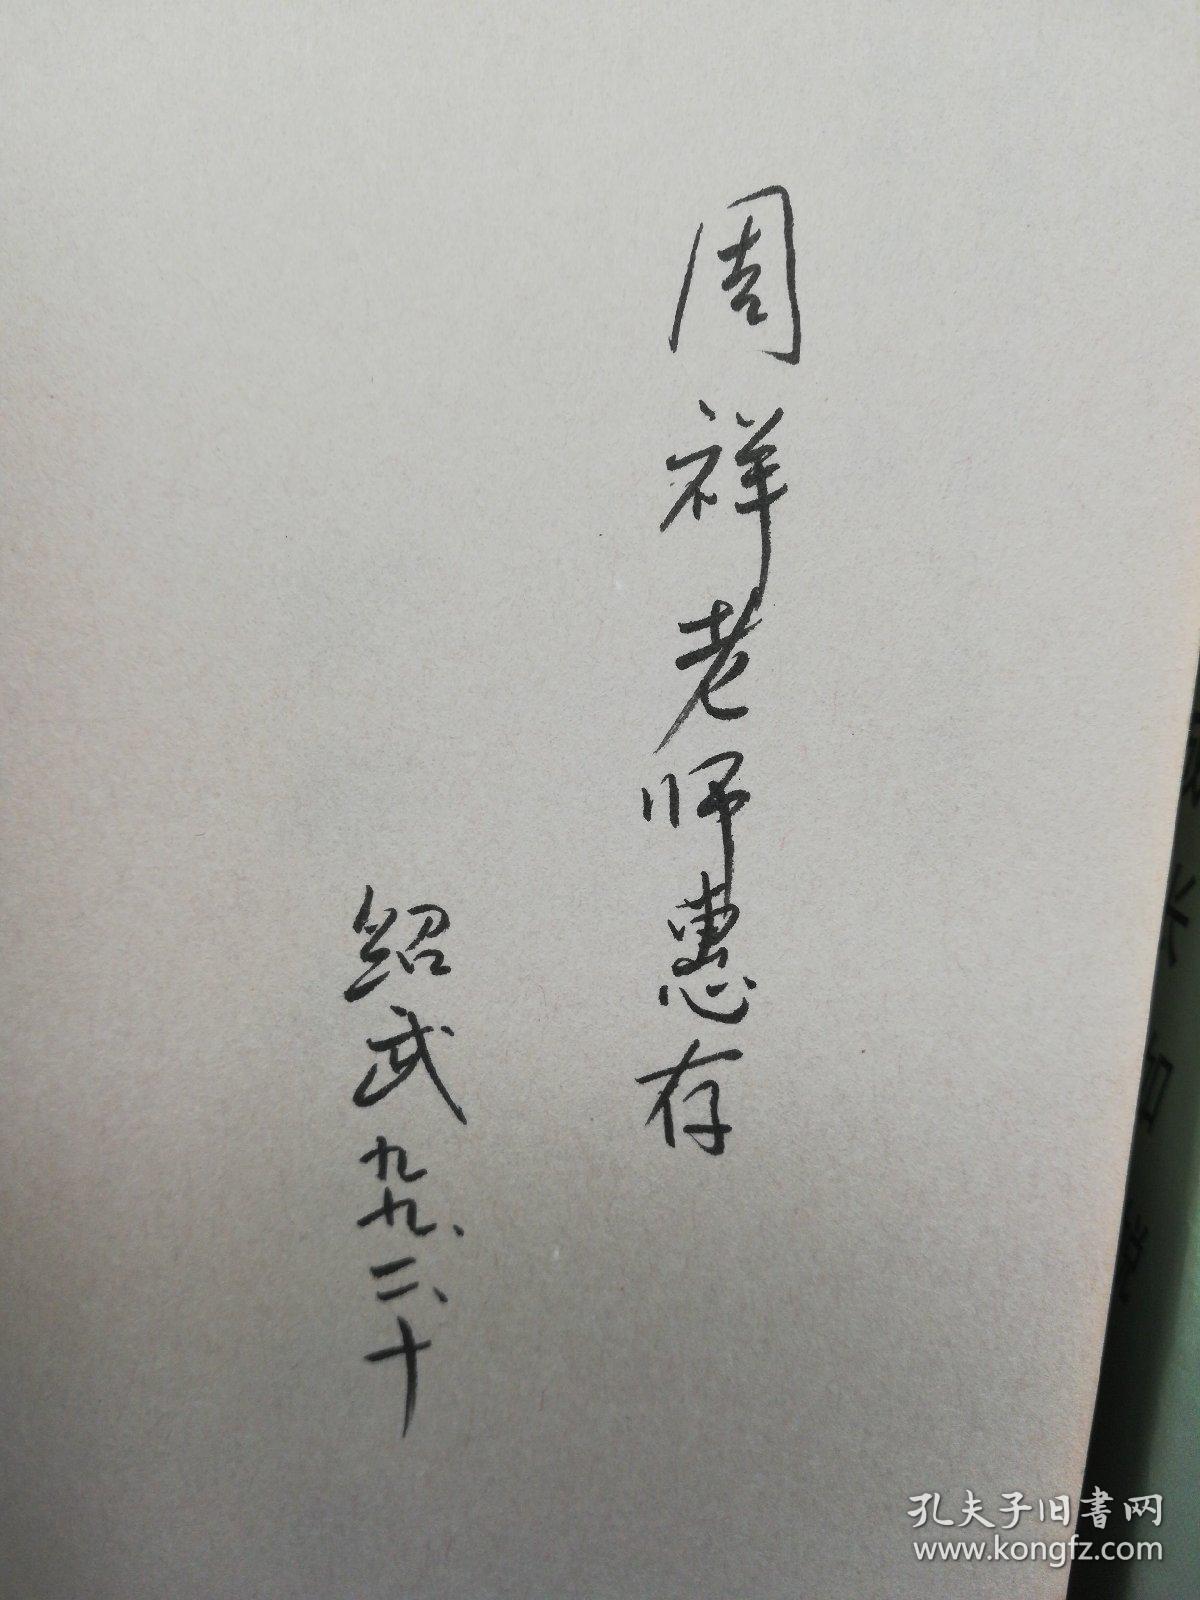 周祥老师惠存
绍武九九、二、十
孔夫子旧書网
www.kongfz.com